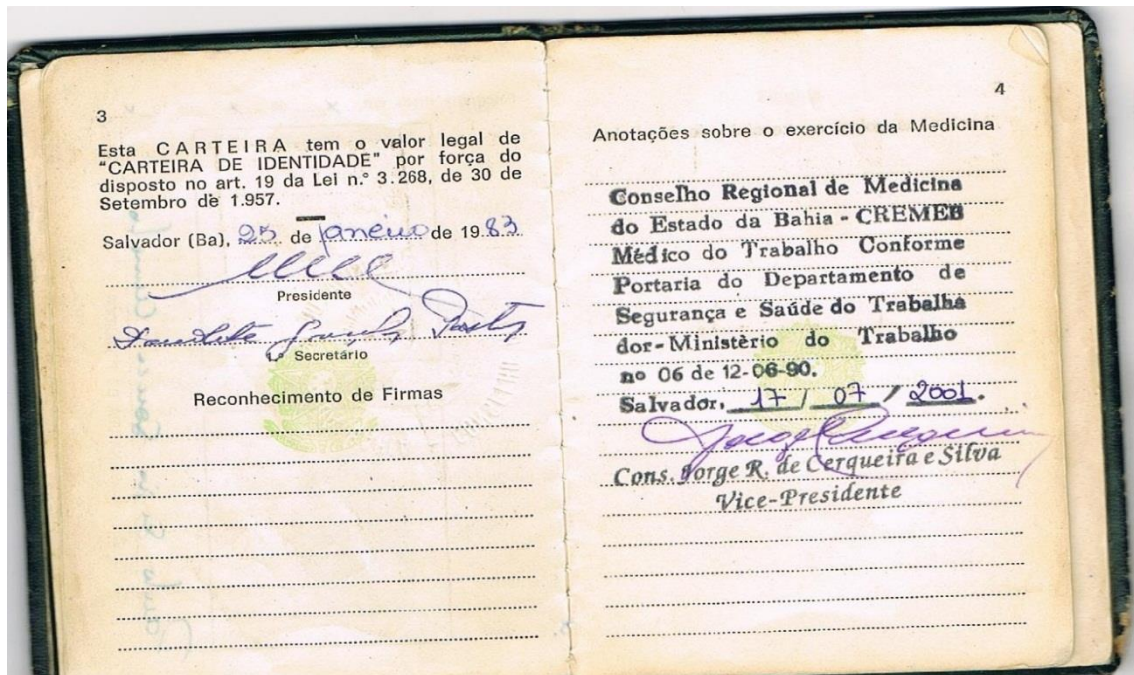 3
Esta CARTEIRA tem o valor legal de
"CARTEIRA DE IDENTIDADE" por força do
disposto no art. 19 da Lei n.º 3.268, de 30 de
Setembro de 1.957.
Salvador (Ba), 25 de janeiro de 1983
Presidente
1.º Secretário
Reconhecimento de Firmas
4
Anotações sobre o exercício da Medicina
Conselho Regional de Medicina
do Estado da Bahia - CREMEB
Médico do Trabalho Conforme
Portaria do Departamento de
Segurança e Saúde do Trabalha
dor-Ministèrio do Trabalho
nº 06 de 12-06-90.
Salvador, 17 / 07 / 2001.
Cons. Jorge R. de Cerqueira e Silva
Vice-Presidente